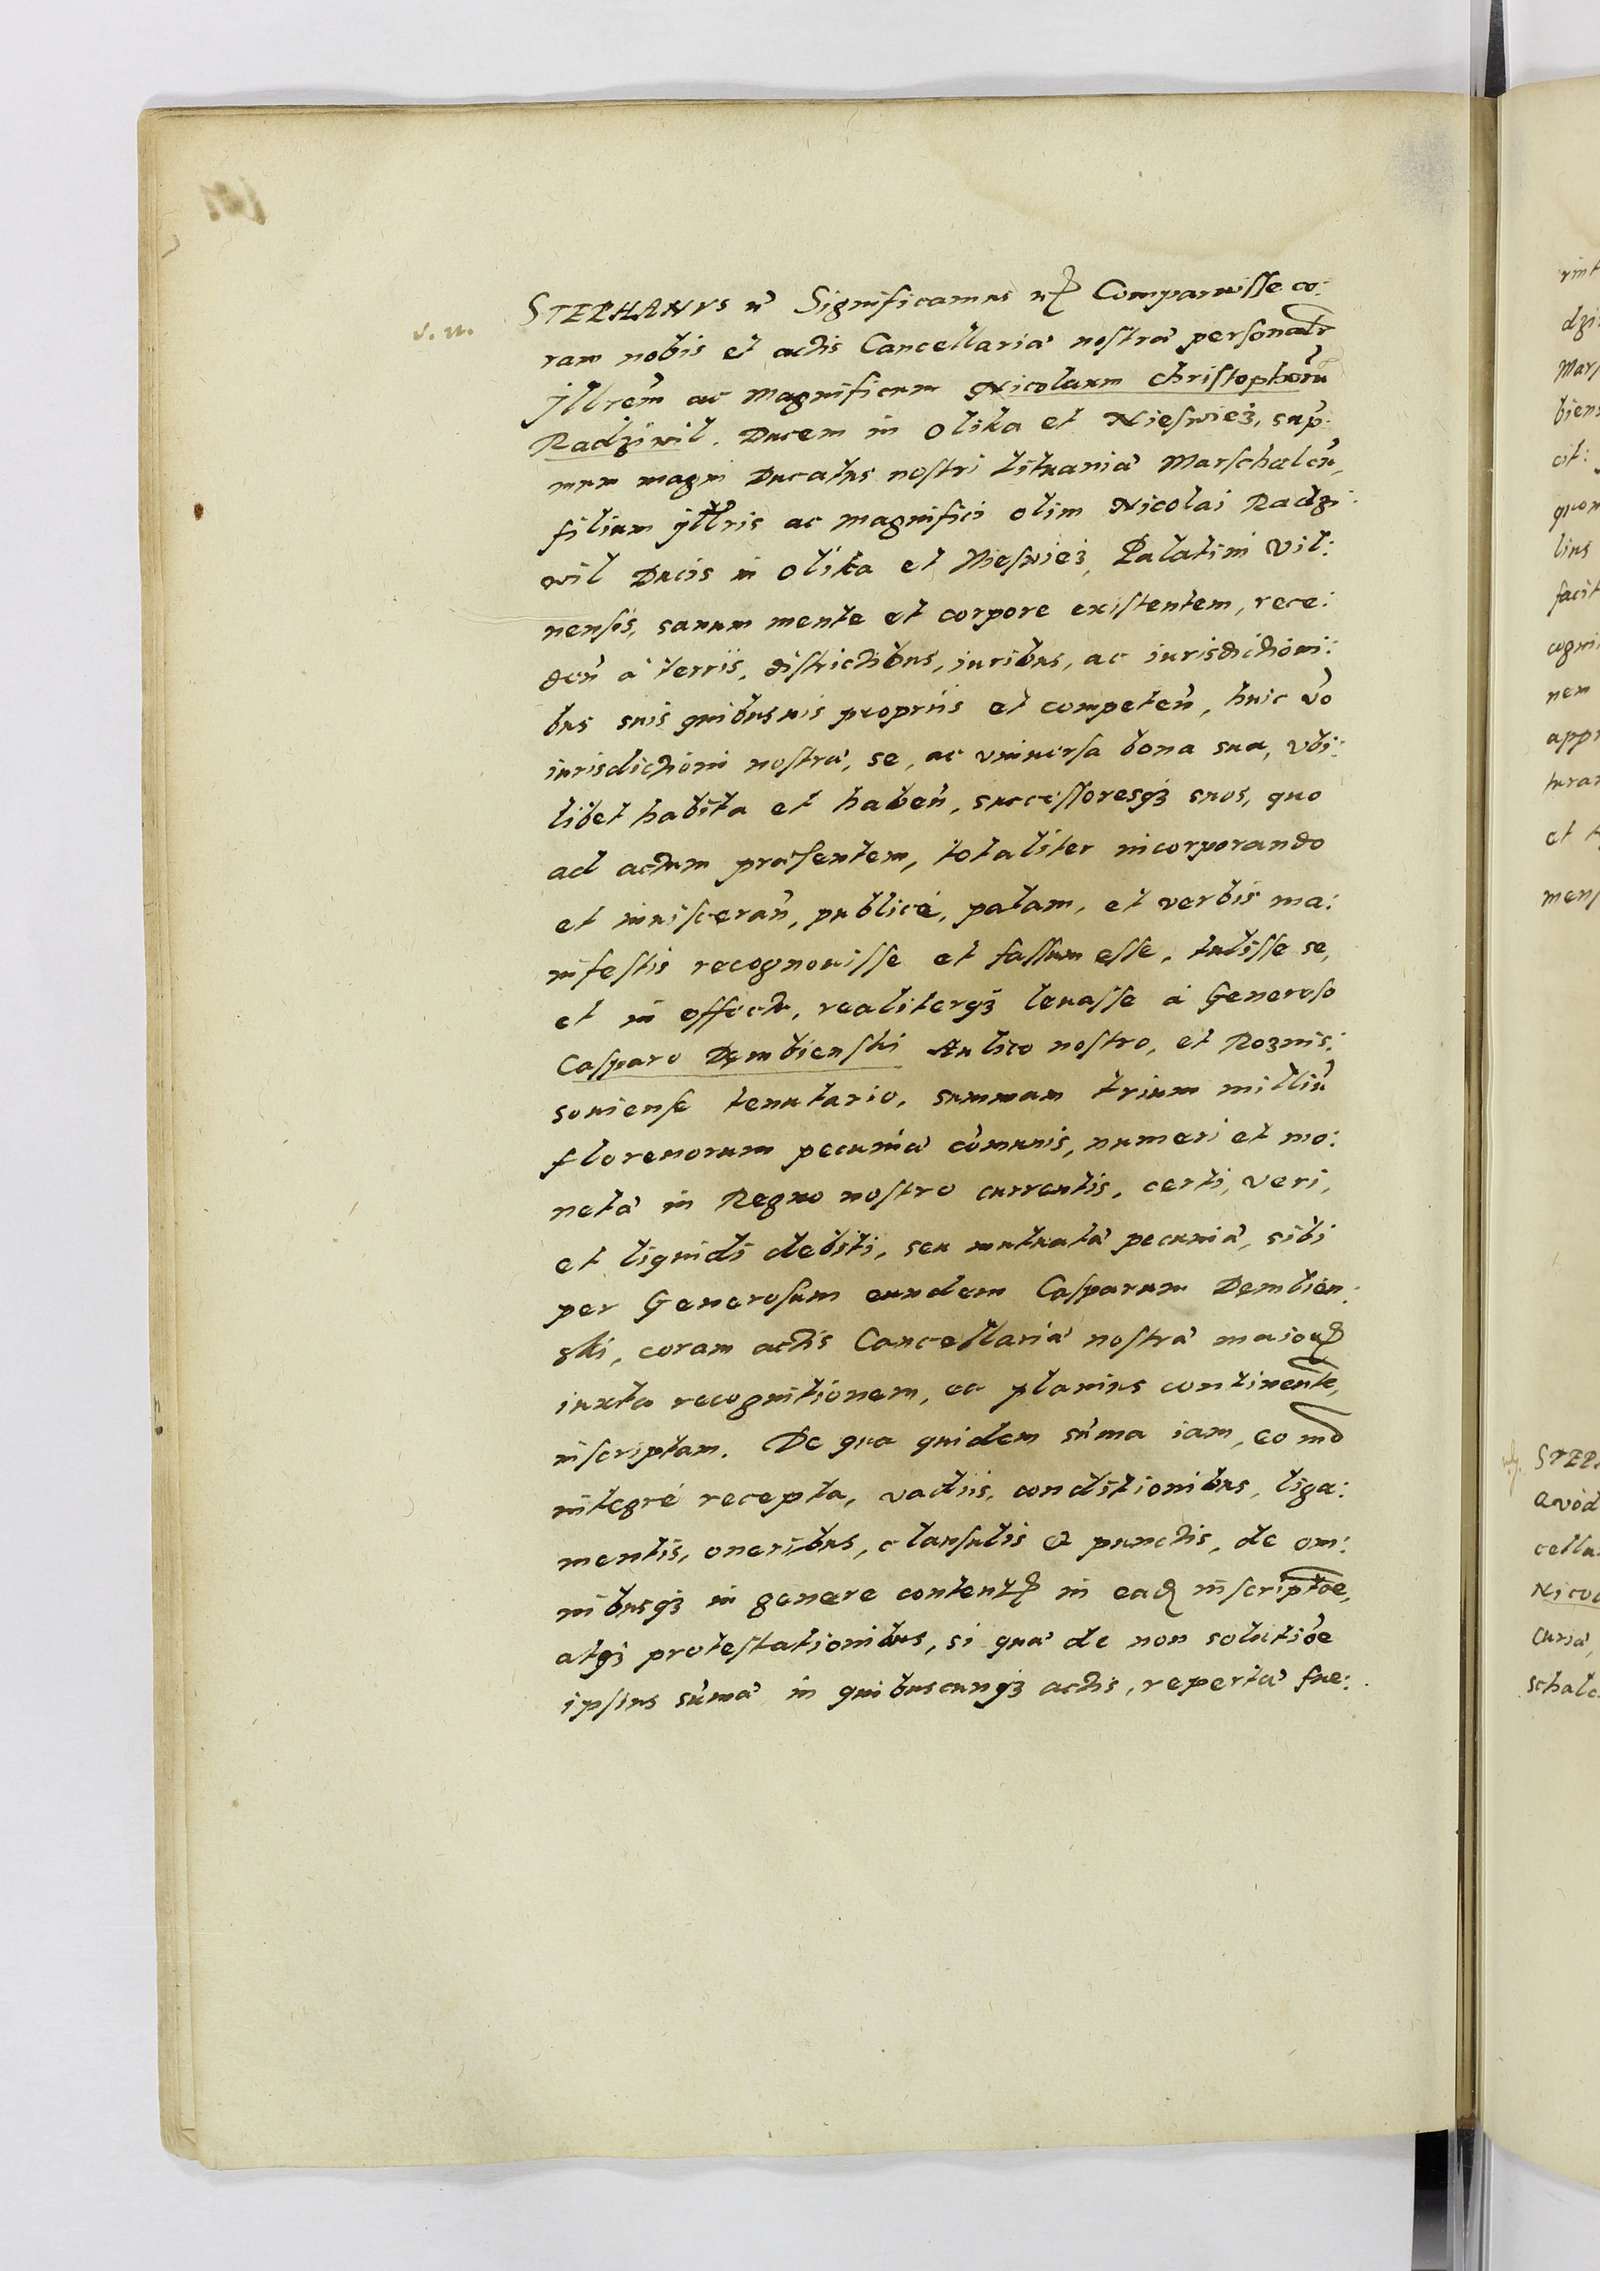 STEPHANVS &c Significamus &c Comparuisse co:
ram nobis et actis Cancellariæ nostræ personalr
Jllrem ac Magnificum Nicolaum Christophorũ
Radziwil. Ducem in Olika et Nieswież, sup:
mum magni Ducatus nostri Lituaniæ Marschalcũ,
filium jllris ac magnifici olim Nicolai Radzi:
wil Ducis in Olika et Nieswież, Palatini Vil:
nensis, sanum mente et corpore existentem, rece:
den̄ à terris, districtibus, iuribus, ac iurisdictioni:
bus suis quibusuis propriis et competen̄, huic vo
iurisdictioni nostræ, se, ac vniuersa bona sua, vbi:
libet habita et haben̄, successoresq3 suos, quo
ad actum præsentem, totaliter incorporando
et inuisceran̄, publicè, palam, et verbis ma:
nifestis recognouisse et fassum esse, tulisse se,
et in effectu, realiterq3 leuasse à Generoso
Casparo Dembienski Aulico nostro, et Roznis:
souiense tenutario, summam trium milliũ
florenorum pecuniæ com̄unis, numeri et mo:
netæ in Regno nostro currentis, certi, veri,
et liquidi debiti, seu mutuatæ pecuniæ, sibi
per Generosum eundem Casparum Dembien:
ski, coram actis Cancellariæ nostræ maior
iuxta recognitionem, ea planius continente,
inscriptam. De qua quidem sum̄a iam, eo mo
integrè recepta, vadiis, conditionibus, liga:
mentis, oneribus, clausulis et punctis, de om:
nibusq3 in genere content in ead inscriptoe,
atq3 protestationibus, si quæ de non solutioe
ipsius sum̄æ in quibuscunq3 actis, repertæ fue:
STEP
Quod
cella
Nico
Curiæ,
schalc
rint
dzi
Mars
biens
cit:
quon
lius
facit
cogni
nem
appr
turam
et
mens